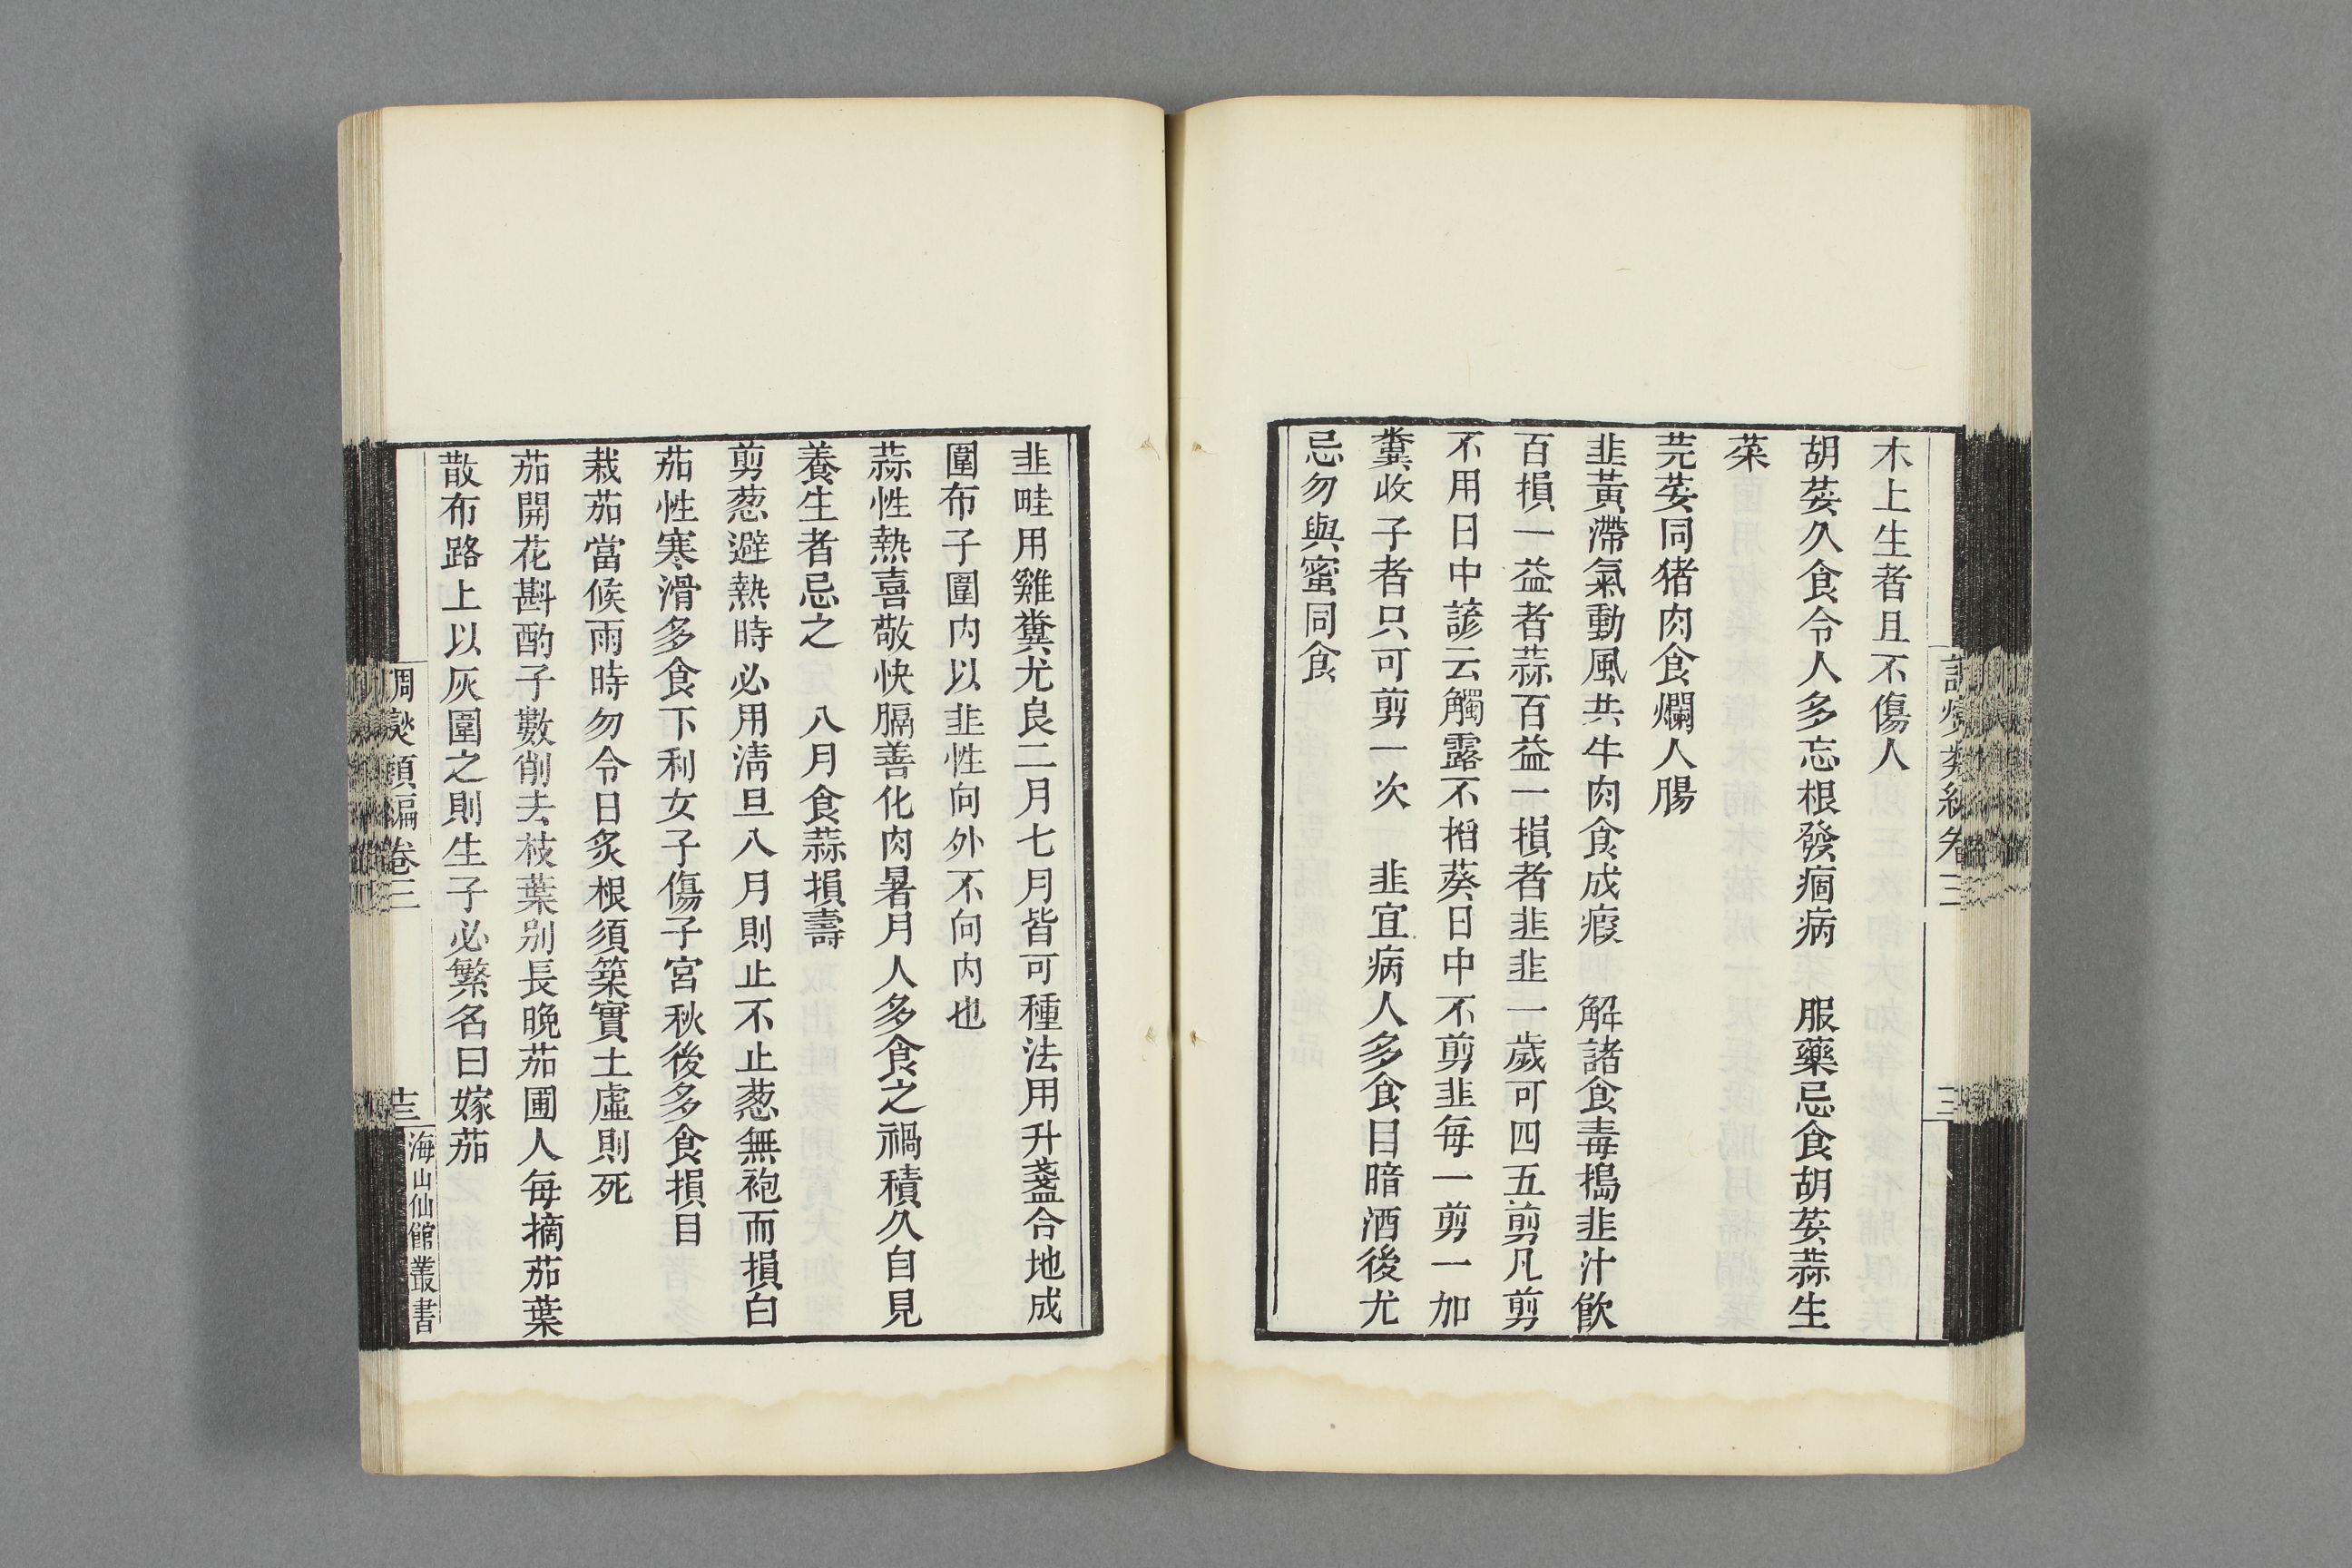 木上生者且不傷人
胡荽久食令人多忘根發痼病　服藥忌食胡荽蒜生
菜
芫荽同猪肉食爛人腸
韭黃滯氣動風共牛肉食成瘕　解諸食毒搗韭汁飮
百損一益者蒜百益一損者韭韭一歲可四五剪凡剪
不用日中諺云觸露不掐葵日中不剪韭每一剪一加
糞收子者只可剪一次　韭宜病人多食目暗酒後尤
忌勿與蜜同食
韭畦用雞糞尤良二月七月皆可種法用升盞合地成
圍布子圍内以韭性向外不向内也
蒜性熱喜散快膈善化肉暑月人多食之禍積久自見
養生者忌之　八月食蒜損壽
剪葱避熱時必用淸旦八月則止不止葱無袍而損白
茄性寒滑多食下利女子傷子宮秋後多食損目
栽茄當候雨時勿令日炙根須築實土虛則死
茄開花斟酌子數削去枝葉别長晩茄圃人每摘茄葉
散布路上以灰圍之則生子必繁名曰嫁茄
調燮類編卷三
海山仙館叢書